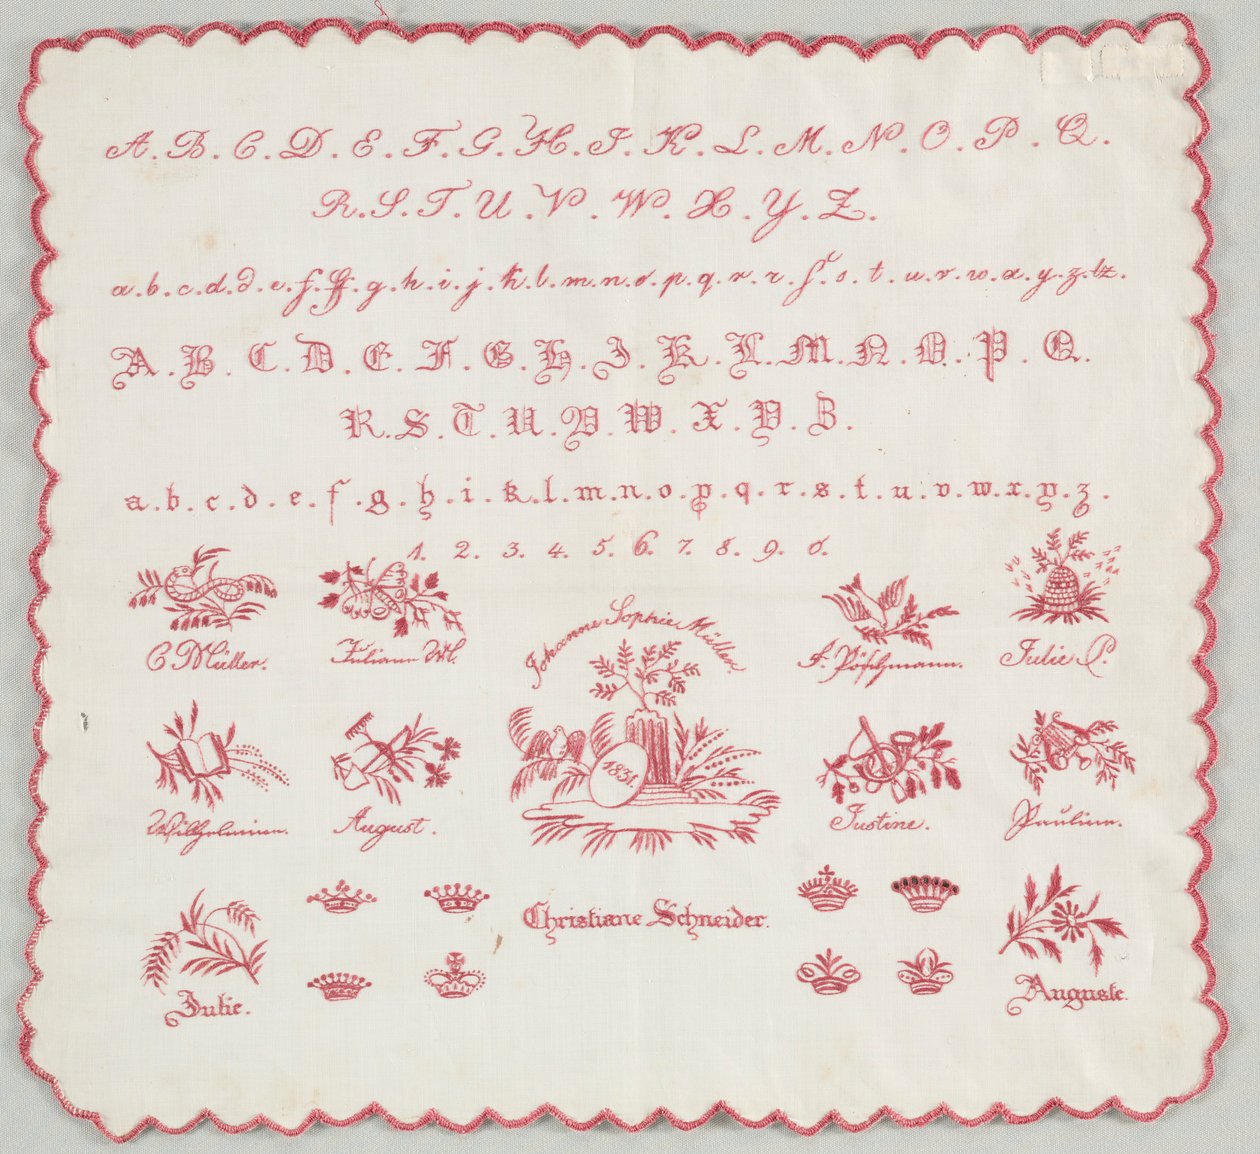 A. B. C. D. E. F. G. H. I. K. L. M. N. O. P. Q.
R. S. T. U. V. W. X. Y. Z.
a. b. c. d. d. e. f. ff. g. h. i. j. k. l. m. n. o. p. q. r. r. ſ. s. t. u. v. w. x. y. z. tz.
A. B. C. D. E. F. G. H. I. K. L. M. N. O. P. Q.
R. S. T. U. V. W. X. Y. Z.
a. b. c. d. e. f. g. h. i. k. l. m. n. o. p. q. r. s. t. u. v. w. x. y. z.
1. 2. 3. 4. 5. 6. 7. 8. 9. 0.
Johanne Sophie Müller.
C Müller. Juliane W. F. Pöſchmann. Julie P.
1831
Wilhelmine. August. Justine. Pauline.
Christiane Schneider.
Julie. Auguste.